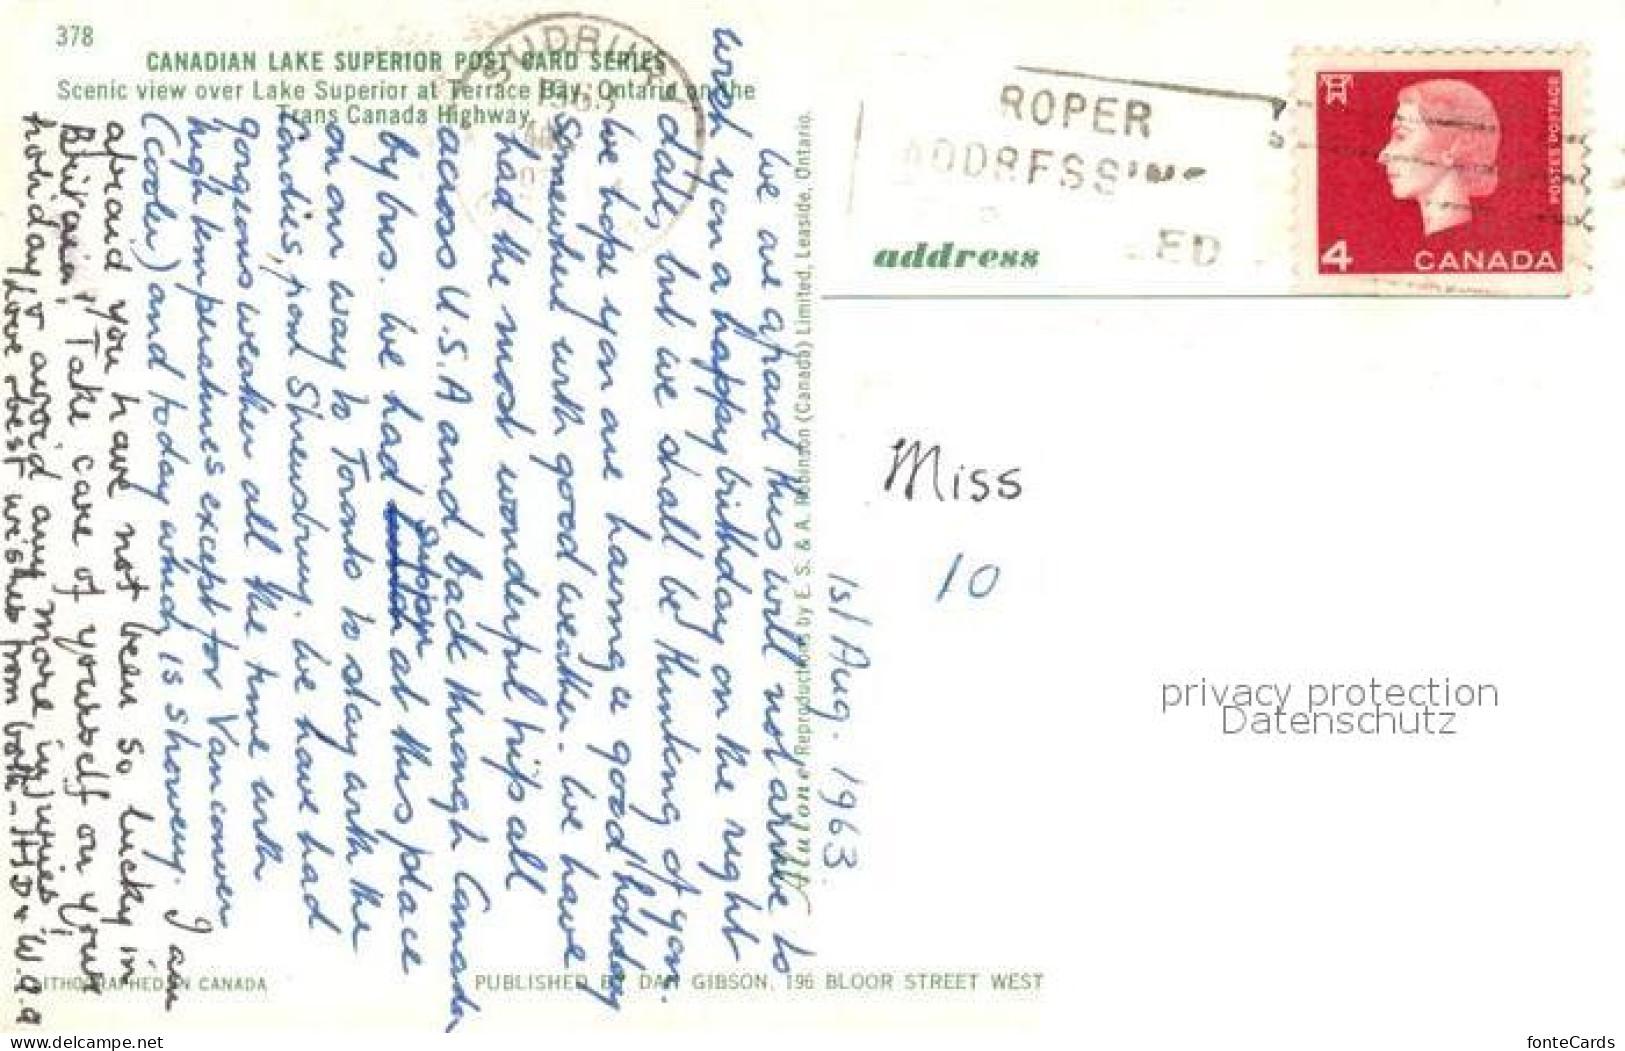 378
CANADIAN LAKE SUPERIOR POST CARD SERIES
Scenic view over Lake Superior at Terrace Bay, Ontario on the
Trans Canada Highway.
SUDBURY
1963
ROPER
ADDRESSING
ED
address
POSTES POSTAGE
4 CANADA
1st Aug. 1963.
We are afraid this will not arrive to
wish you a happy birthday on the right
date, but we shall be thinking of you.
We hope you are having a good holiday
somewhere with good weather. We have
had the most wonderful trip all
across U.S.A and back through Canada
by bus. We had supper at this place
on our way to Toronto to stay with the
from Shrewsbury. We have had
gorgeous weather all the time with
high temperatures except for Vancouver
(cooler) and today which is showery. I am
afraid you have not been so lucky in
Britain! Take care of yourself on your
holiday & avoid any more injuries!
Love & best wishes from both - H.D & W.A.A
Reproductions by E. S. & A. Robinson (Canada) Limited, Leaside, Ontario.
Miss
10
privacy protection
Datenschutz
LITHOGRAPHED IN CANADA
PUBLISHED BY DAN GIBSON, 196 BLOOR STREET WEST
www.delcampe.net
fonteCards